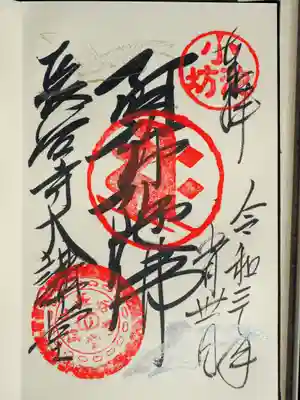 奉拝
小池坊
令和三年
阿弥陀佛
長谷寺大講堂